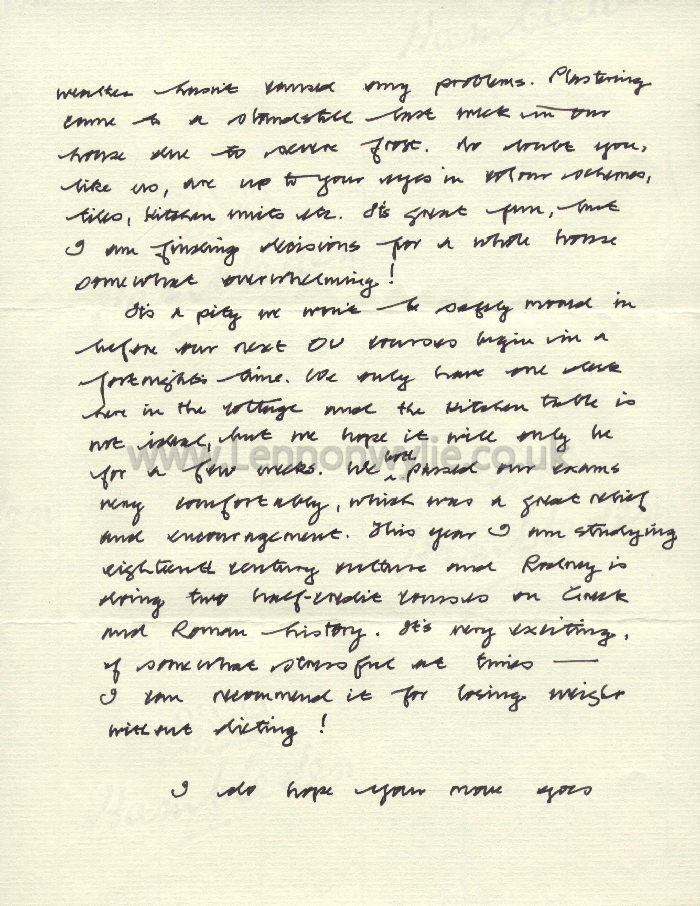 weather hasn't caused any problems. Plastering
came to a standstill last week in our
house due to severe frost. No doubt you,
like us, are up to your eyes in colour schemes,
tiles, kitchen units etc. It's great fun, but
I am finding decisions for a whole house
somewhat overwhelming!
It's a pity we won't be safely moved in
before our next OU courses begin in a
fortnight's time. We only have one desk
here in the cottage and the kitchen table is
not ideal, but we hope it will only be
www.Lennonwylie.co.uk
for a few weeks. We both passed our exams
very comfortably, which was a great relief
and encouragement. This year I am studying
eighteenth century culture and Rodney is
doing two half-credit courses on Greek
and Roman history. It's very exciting,
if somewhat stressful at times —
I can recommend it for losing weight
without dieting!
I do hope your move goes